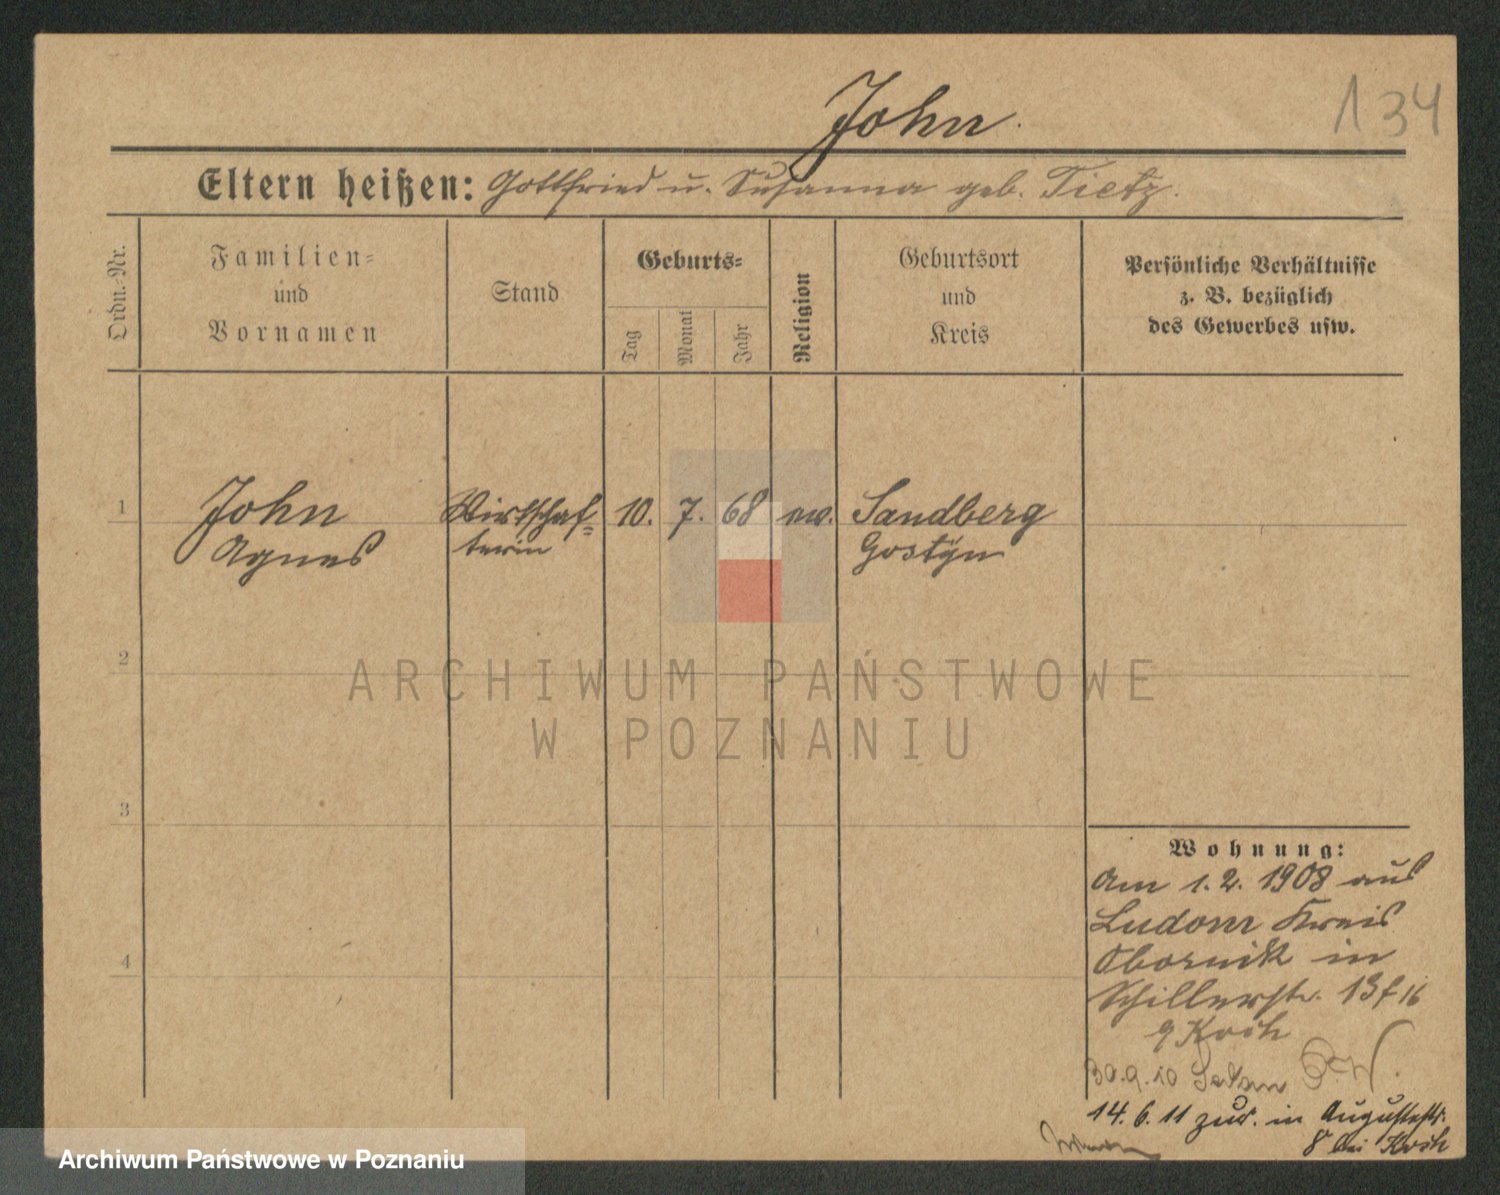 John.
134
Eltern heißen: Gottfried u. Susanna geb. Tietz.
Ordn.-Nr.
Familien-
und
Vornamen
Stand
Geburts-
Tag
Monat
Jahr
Religion
Geburtsort
und
Kreis
Persönliche Verhältnisse
z. B. bezüglich
des Gewerbes usw.
1
John
Agnes
Wirtschaf-
terin
10. 7. 68 ev.
Sandberg
Gostyn
2
3
4
ARCHIWUM PAŃSTWOWE
W POZNANIU
Wohnung:
Am 1.2. 1908 aus
Ludom Kreis
Obornik in
Schillerstr. 13 f 16
Koch
30.9.10
14.6.11 zur. in Augustestr.
8 bei Koch
Archiwum Państwowe w Poznaniu